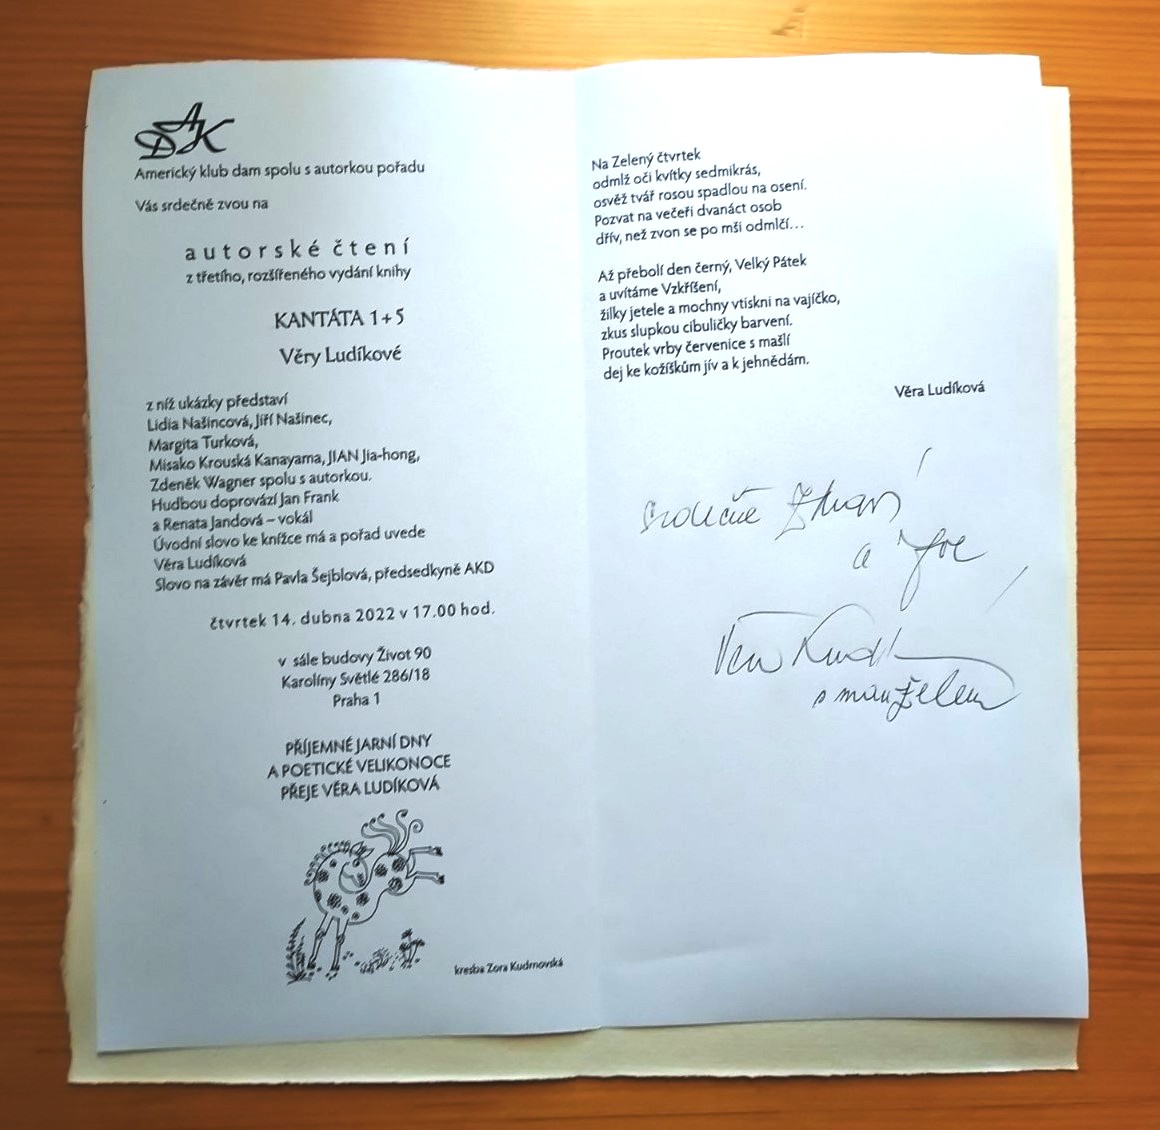 ADK
Americký klub dam spolu s autorkou pořadu
Vás srdečně zvou na
autorské čtení
z třetího, rozšířeného vydání knihy
KANTÁTA 1+5
Věry Ludíkové
z níž ukázky představí
Lidia Našincová, Jiří Našinec,
Margita Turková,
Misako Krouská Kanayama, JIAN Jia-hong,
Zdeněk Wagner spolu s autorkou.
Hudbou doprovází Jan Frank
a Renata Jandová – vokál
Úvodní slovo ke knížce má a pořad uvede
Věra Ludíková
Slovo na závěr má Pavla Šejblová, předsedkyně AKD
čtvrtek 14. dubna 2022 v 17.00 hod.
v sále budovy Život 90
Karolíny Světlé 286/18
Praha 1
PŘÍJEMNÉ JARNÍ DNY
A POETICKÉ VELIKONOCE
PŘEJE VĚRA LUDÍKOVÁ
kresba Zora Kudrnovská
Na Zelený čtvrtek
odmlž oči kvítky sedmikrás,
osvěž tvář rosou spadlou na osení.
Pozvat na večeři dvanáct osob
dřív, než zvon se po mši odmlčí...
Až přebolí den černý, Velký Pátek
a uvítáme Vzkříšení,
žilky jetele a mochny vtiskni na vajíčko,
zkus slupkou cibuličky barvení.
Proutek vrby červenice s mašlí
dej ke kožíškům jív a k jehnědám.
Věra Ludíková
srdečně zdraví
a
Věra Ludí
s manželem